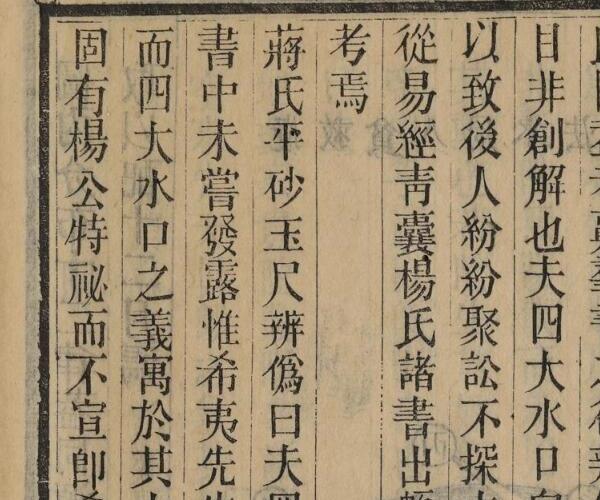 日非創解也夫四大水口
以致後人紛紛聚訟不探
從易經青囊楊氏諸書出
考焉
蔣氏平砂玉尺辨僞曰夫四
書中未嘗發露惟希夷先
而四大水口之義寓於其
固有楊公特祕而不宣卽